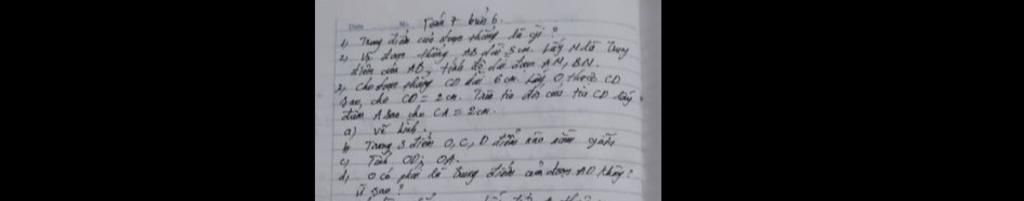 Toán 7 buổi 6.
1) Trung điểm của đoạn thẳng là gì?
2) Vẽ đoạn thẳng AB dài 5 cm. Lấy M là trung
điểm của AB, tính độ dài đoạn AM, BM.
3) Cho đoạn thẳng CD dài 6 cm. Lấy O thuộc CD
sao cho CO = 2 cm. Trên tia đối của tia CD lấy
điểm A sao cho CA = 2 cm.
a) Vẽ hình.
b) Trong 3 điểm O, C, D điểm nào nằm giữa
c) Tính OD; OA.
d) O có phải là trung điểm của đoạn AD không?
Vì sao?